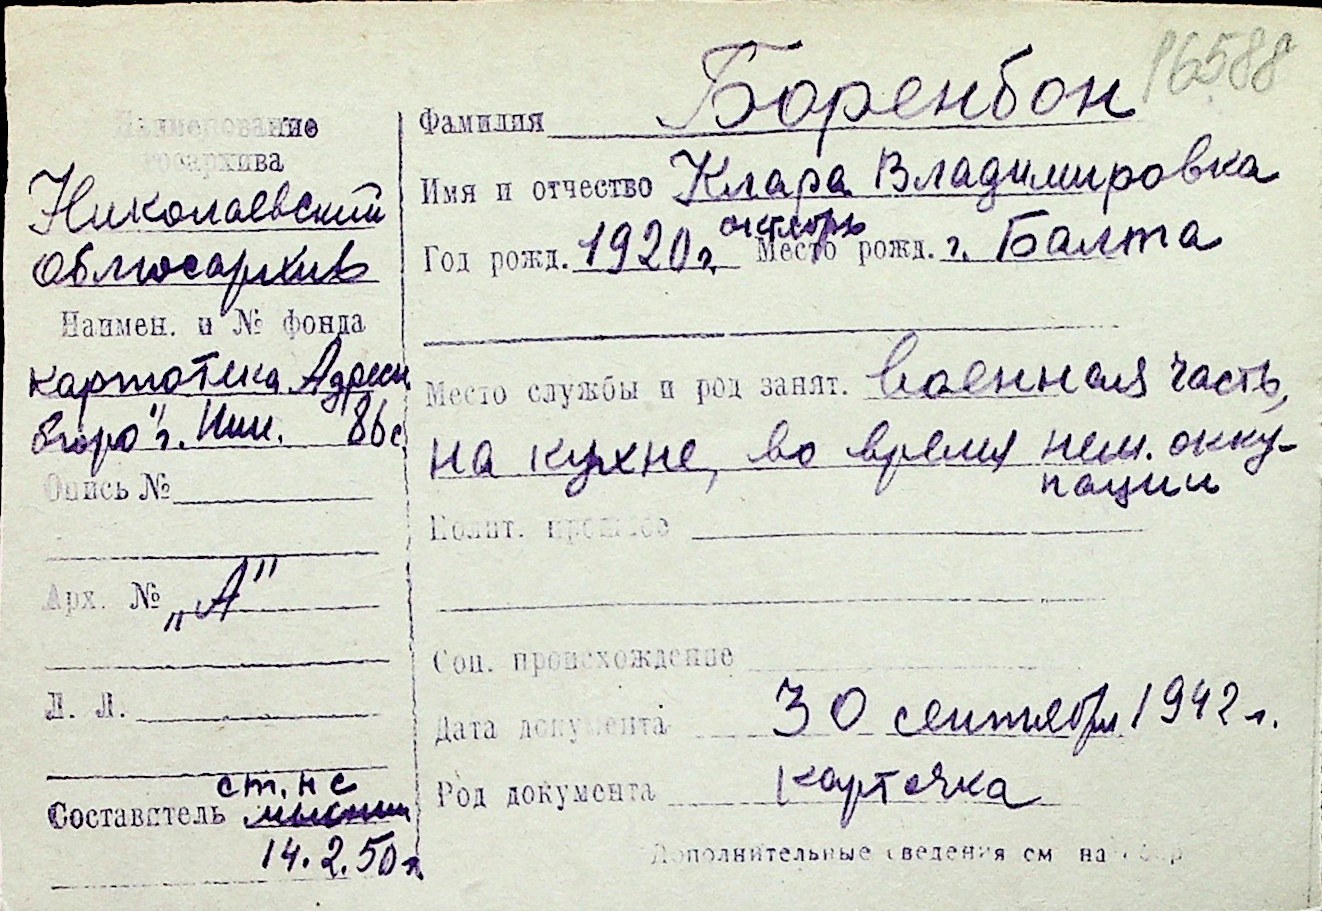 16588
Наименование
госархива
Николаевский
облгосархив
Наимен. и № фонда
картотека „Адресн.
бюро" г. Ник. 86с
Опись №
Арх. № „А"
Л. Л.
ст. н с
Составитель
14.2.50 г.
Фамилия Боренбон
Имя и отчество Клара Владимировка
октябрь
Год рожд. 1920 г. Место рожд. г. Балта
Место службы и род занят. военная часть,
на кухне, во время нем. окку-
пации
Полит. прошлое
Соц. происхождение
Дата документа 30 сентября 1942 г.
Род документа карточка
Дополнительные сведения см на обор